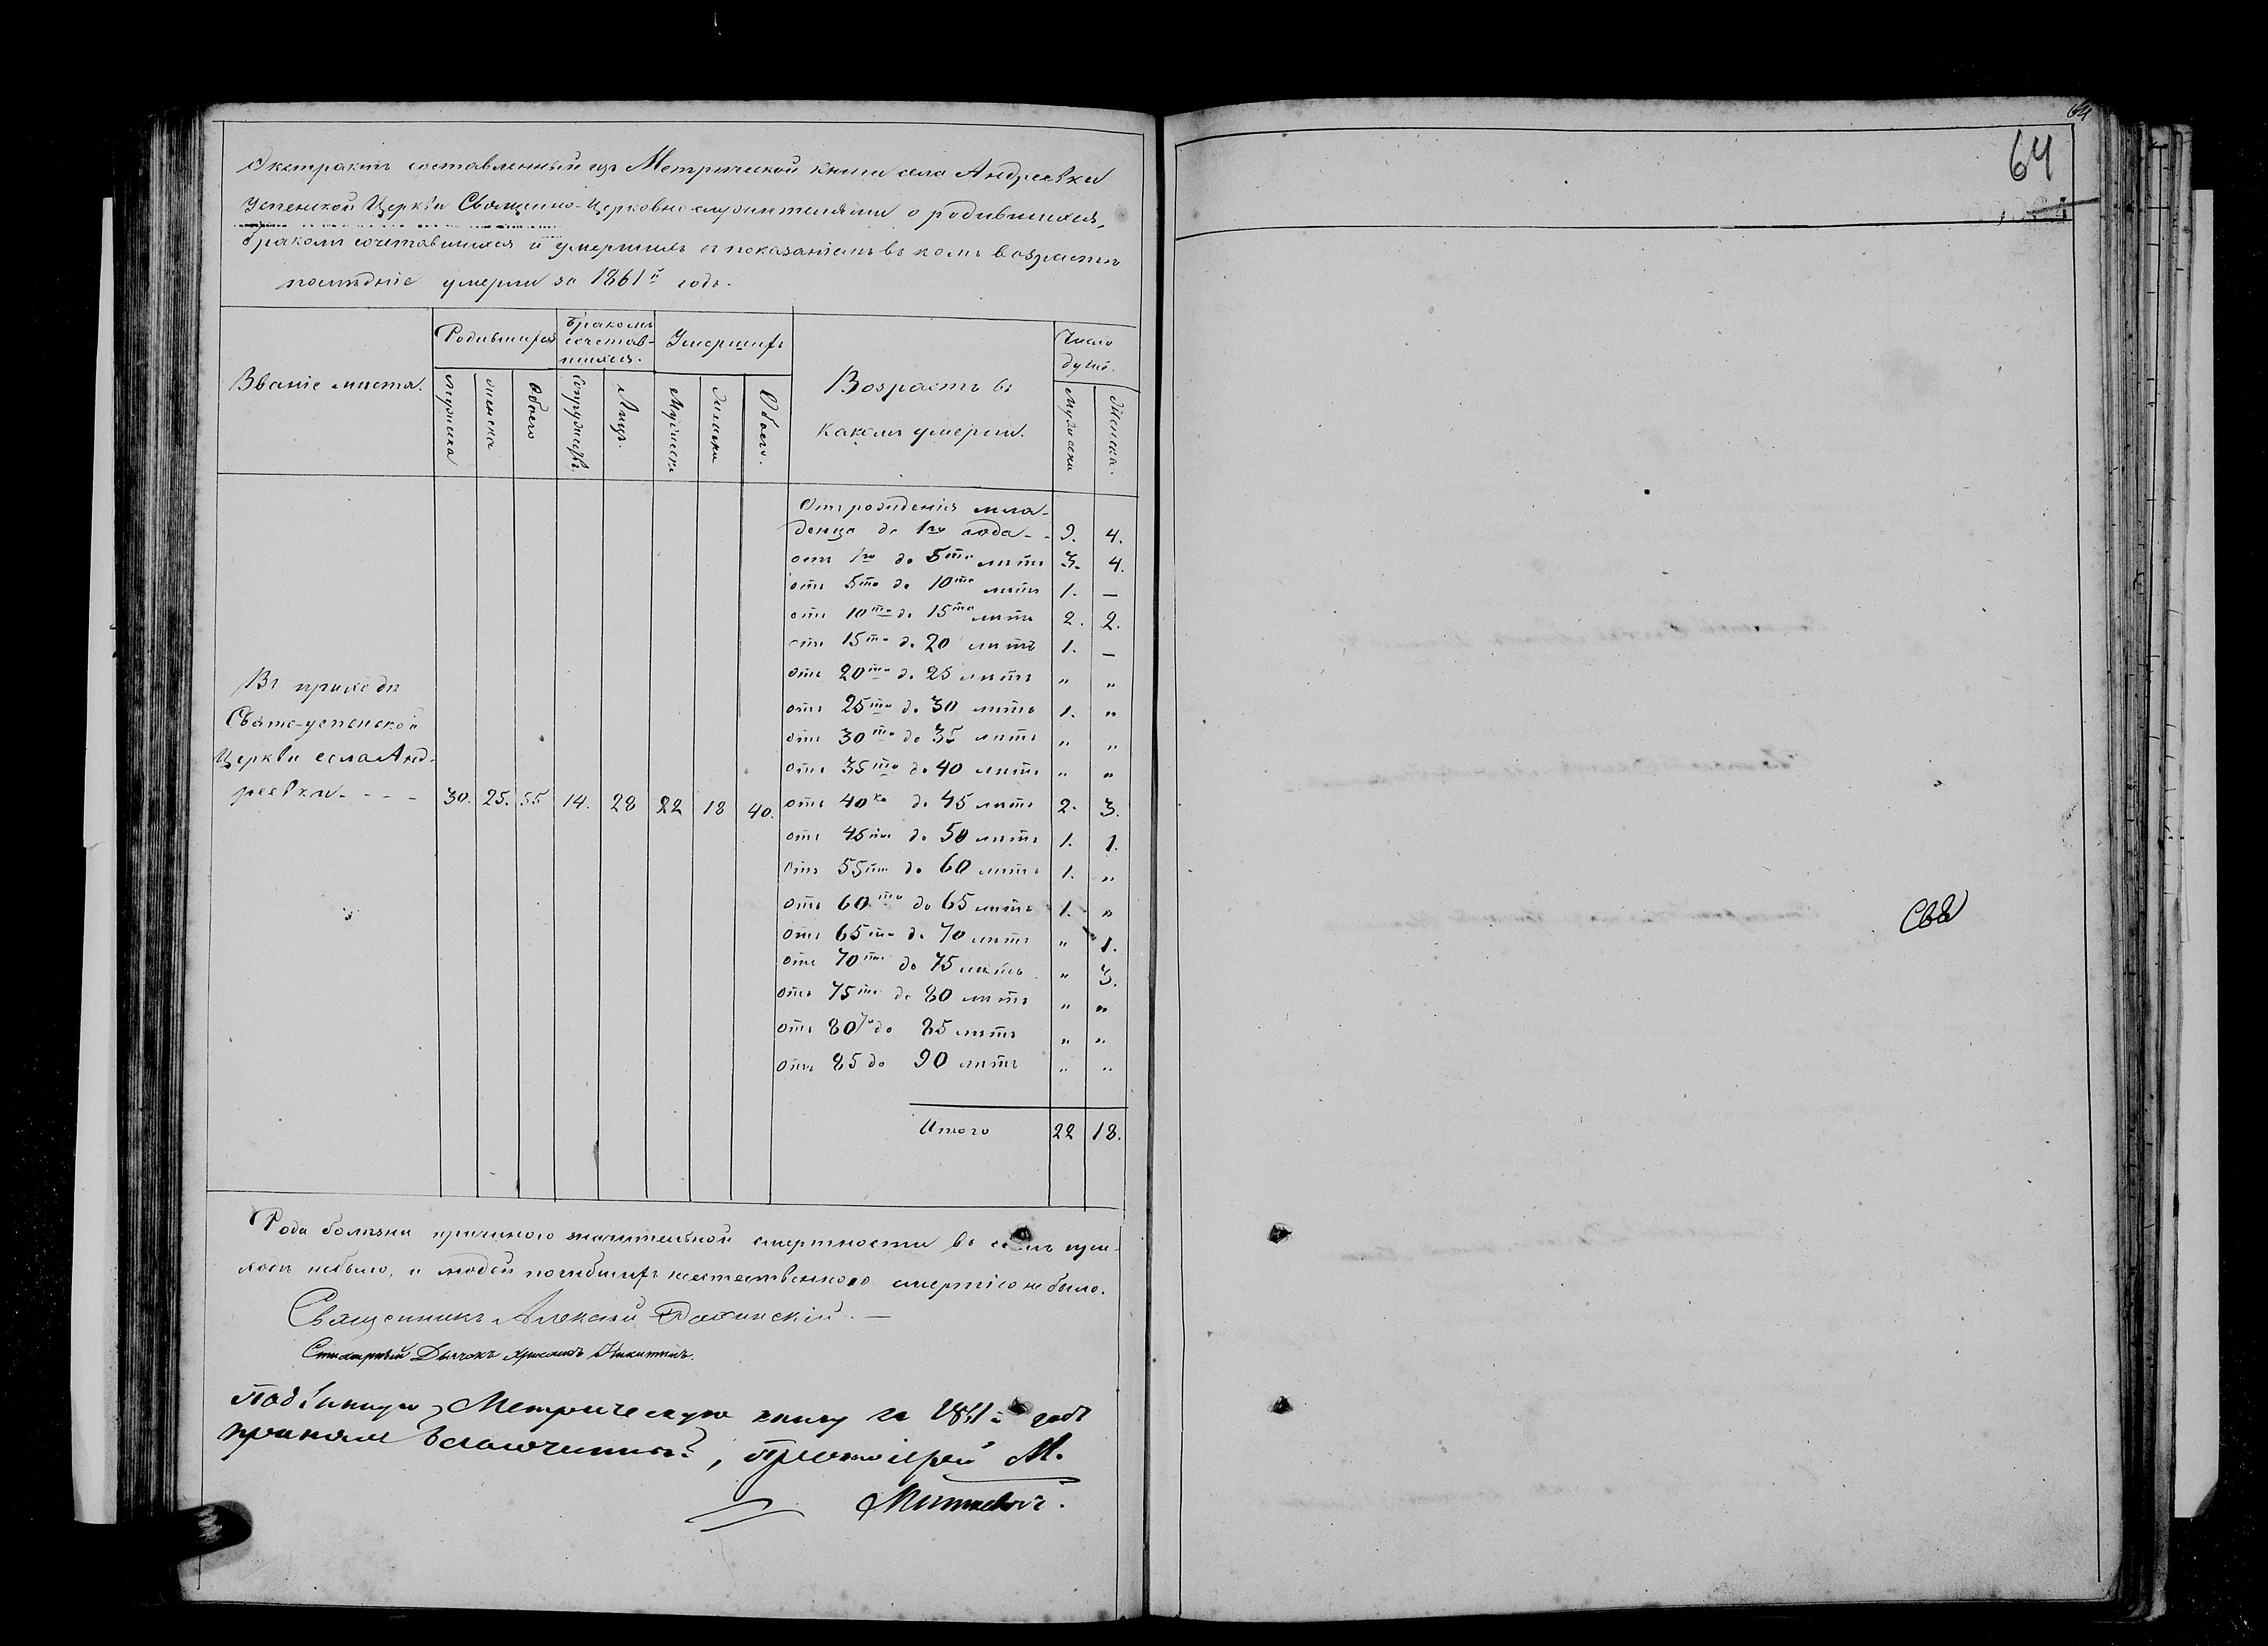 64
64
Экстрактъ составленный изъ Метрической книги села Андреевки
Успенской Церкви Священно-церковно служителями о родившихся,
бракомъ сочетавшихся и умершихъ съ показаніемъ въ комъ возрастѣ
послѣдніе умерли за 1861й годъ.
Званіе мѣста.
Родившихся
Бракомъ
сочетав-
шихся.
Умершихъ
Возрастъ въ
какомъ умерли.
Число
душъ.
Мужеска
женска
Обоего
Супружествъ
Лицъ.
Мужеска
Женска
Обоего.
Мужеска
Женска.
Отъ рожденія мла-
денца до 1го года - - 9. 4.
отъ 1го до 5ти лѣтъ 3. 4.
отъ 5ти до 10ти лѣтъ 1. —
отъ 10ти до 15ти лѣтъ 2. 2.
отъ 15ти до 20 лѣтъ 1. —
отъ 20ти до 25 лѣтъ " "
отъ 25ти до 30 лѣтъ 1. "
отъ 30ти до 35 лѣтъ " "
отъ 35ти до 40 лѣтъ " "
Въ приходѣ
Свято-успенской
Церкви села Анд-
реевки - - - 30. 25. 55 14. 28 22 18 40.
отъ 40ка до 45 лѣтъ 2. 3.
отъ 45ти до 50 лѣтъ 1. 1.
Отъ 55ти до 60 лѣтъ 1. "
отъ 60ти до 65 лѣтъ 1. "
отъ 65ти до 70 лѣтъ " 1.
отъ 70ти до 75 лѣтъ " 3.
отъ 75ти до 80 лѣтъ " "
отъ 80ти до 85 лѣтъ " "
отъ 85 до 90 лѣтъ " "
Итого 22 18.
Рода болѣзни причиною значительной смертности въ семъ при-
ходѣ небыло, и людей погибшихъ неестественною смертію не было.
Священникъ Алексій
Дьячокъ Никитинъ.
Метрическую книгу за 1861й годъ
Протоіерей М.